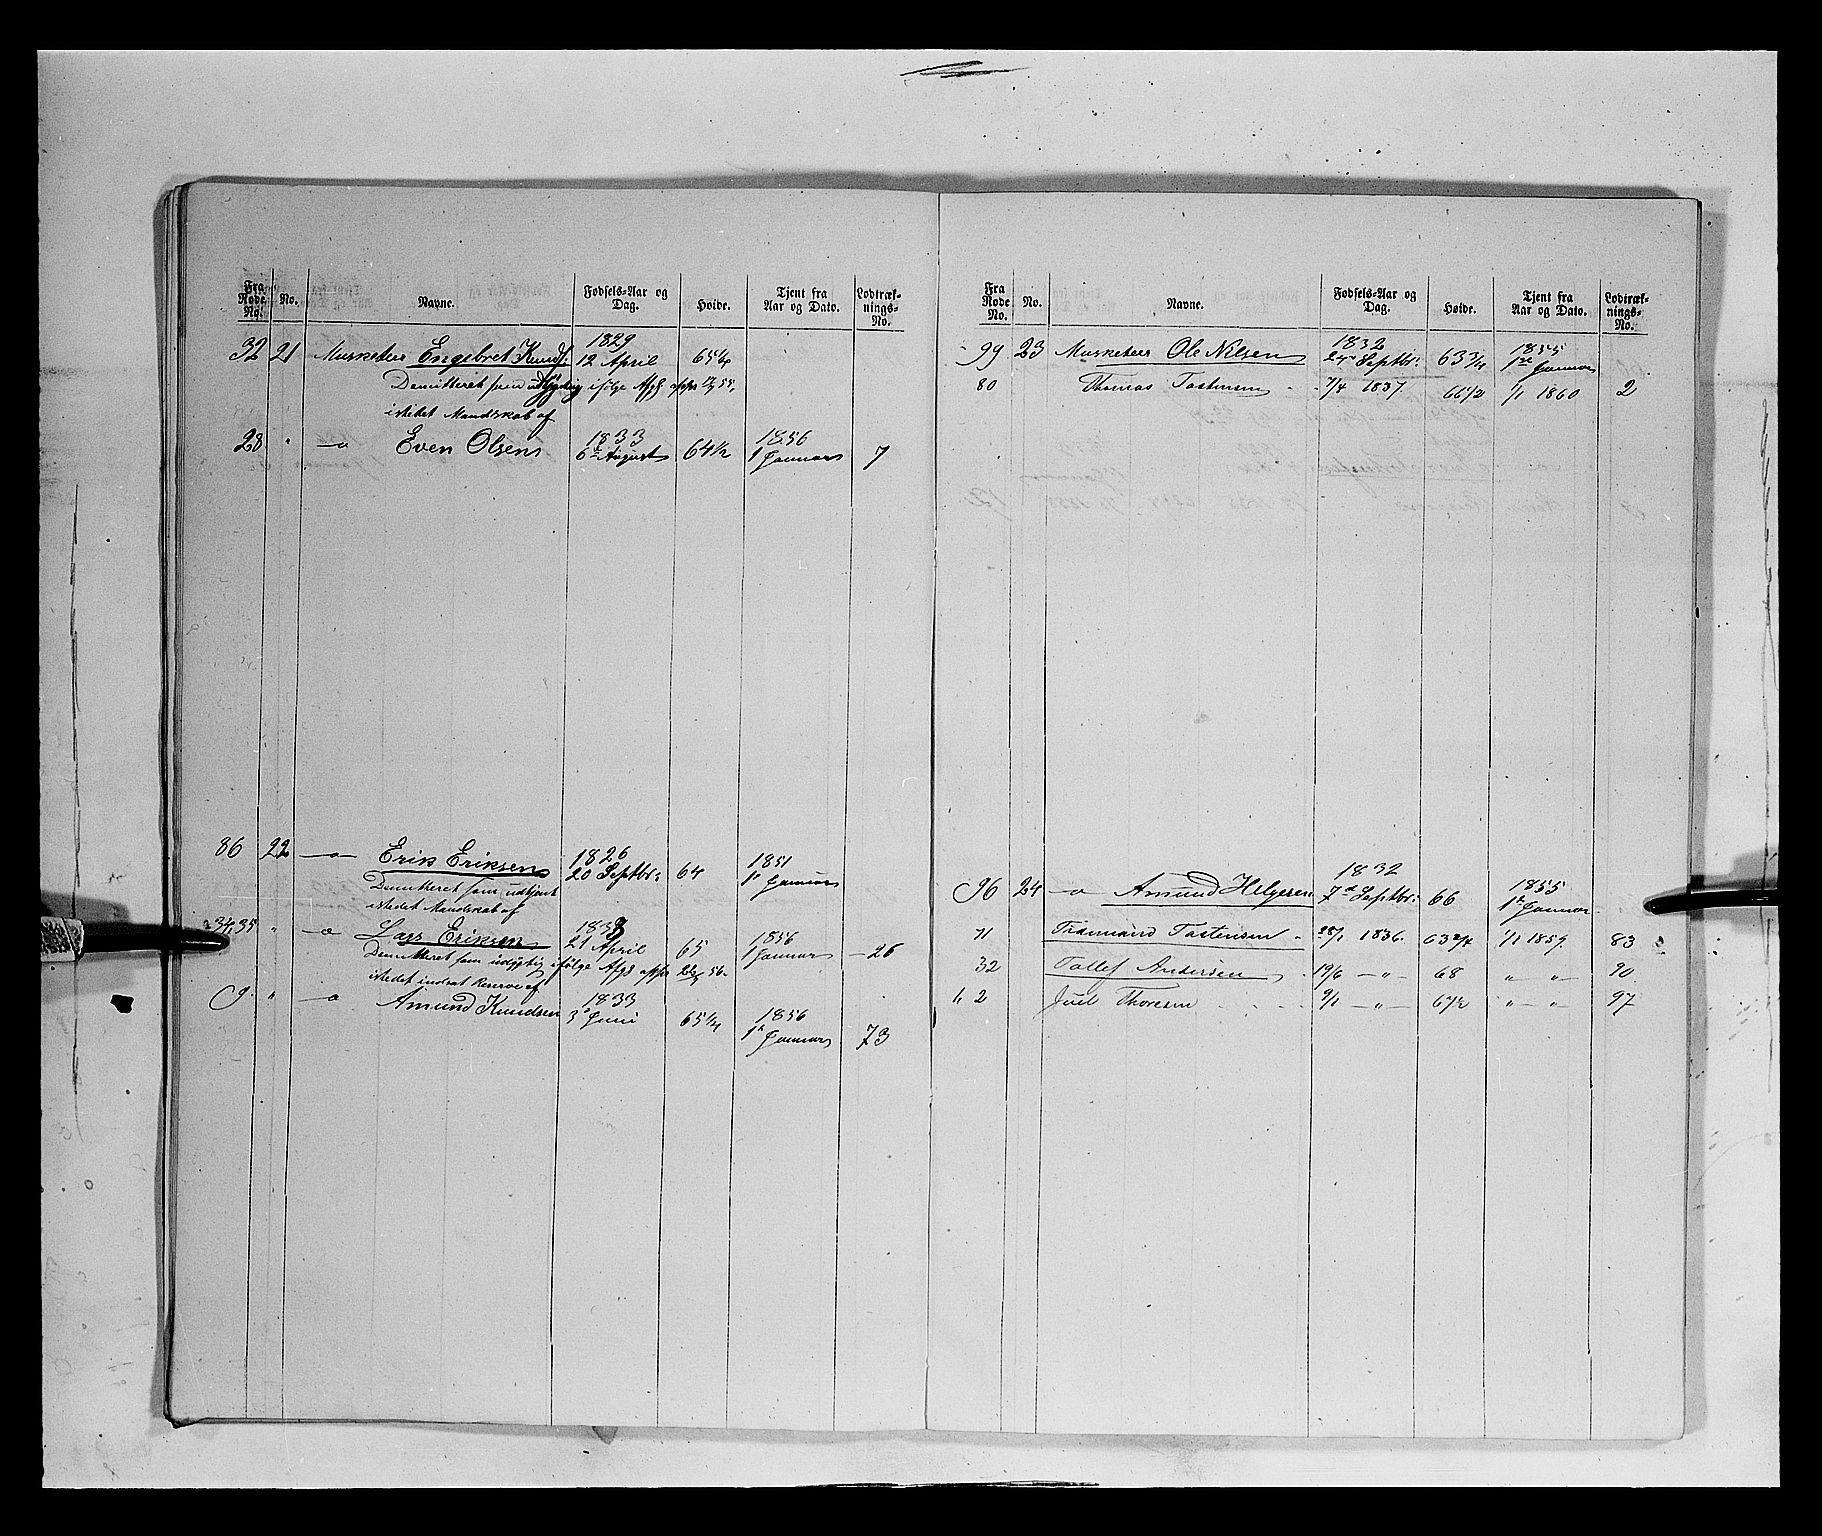 Fra Rode No. No. Navne. Fødsels-Aar og Dag. Høide. Tjent fra Aar og Dato. Lodtræknings-No.
32 21 Musketeer Engebret Knuds. 1829 12 April 65 1/4
Demitteret som udygtig ifølge
istedet Mandskab af
28 " —o Even Olsen 1833 6te August 64 1/2 1856 1 Januar 7
86 22 —o— Erik Eriksen 1826 20 Septbr: 64 1851 1e Januar
Demitteret som udtjent
istedet Mandskab af
34,35 " —o Lars Eriksen 1833 21 April 65 1856 1 Januar — 26
Demitteret som udygtig ifølge
istedet indsat Reserve af
9 " —o Amund Knudsen 1833 3d Juni 65 1/4 1856 1e Januar 73
Fra Rode No. No. Navne. Fødsels-Aar og Dag. Høide. Tjent fra Aar og Dato. Lodtræknings-No.
99 23 Musketeer Ole Nilsen 1832 Septbr: 63 3/4 1855 1te Januar
80 Thomas Tostensen 7/4 1837 66 1/2 1/1 1860 2
96 24 —o Amund Helgesen 1832 7d Septbr: 66 1855 1te Januar
71 Tostensen 28/1 1836. 63 2/4 1/1 1859. 83
32 Tollef Andersen 19/6 —"— 68 " —"— 90
2 Joel Thoresen 9/1 —"— 67 1/2 " —"— 97